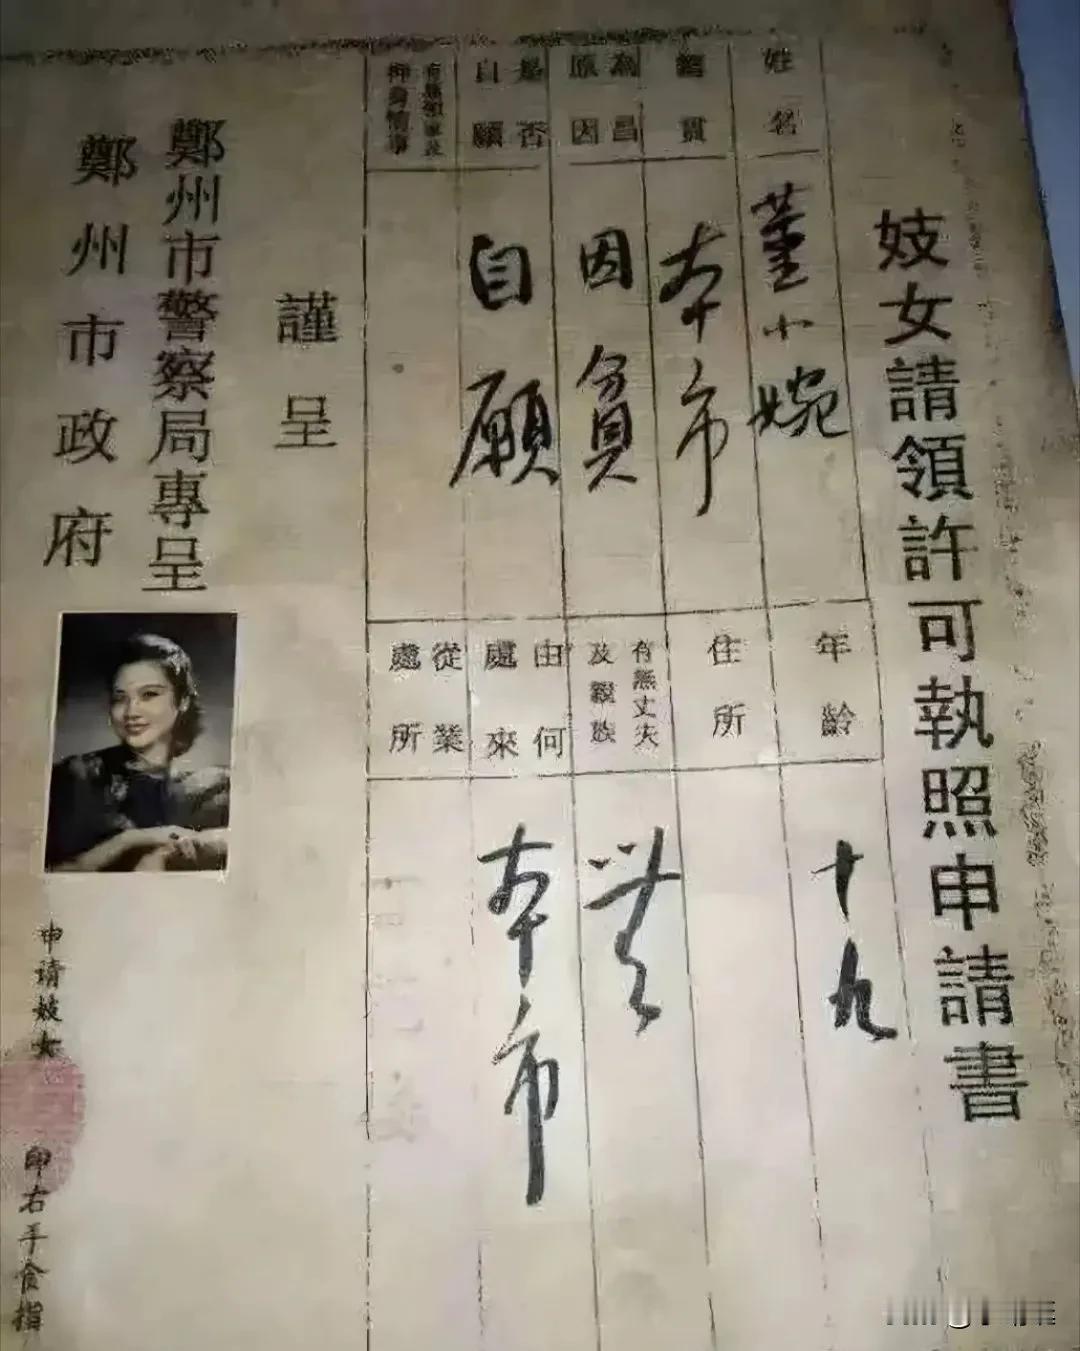 妓女請領許可執照申請書
姓名
董小婉
年齡
十九
籍貫
本市
住所
為昌原因
因貧
有無丈夫及親族
無
是否自願
自願
由何處來
本市
從業處所
謹呈
鄭州市警察局專呈
鄭州市政府
申请妓女
印右手食指